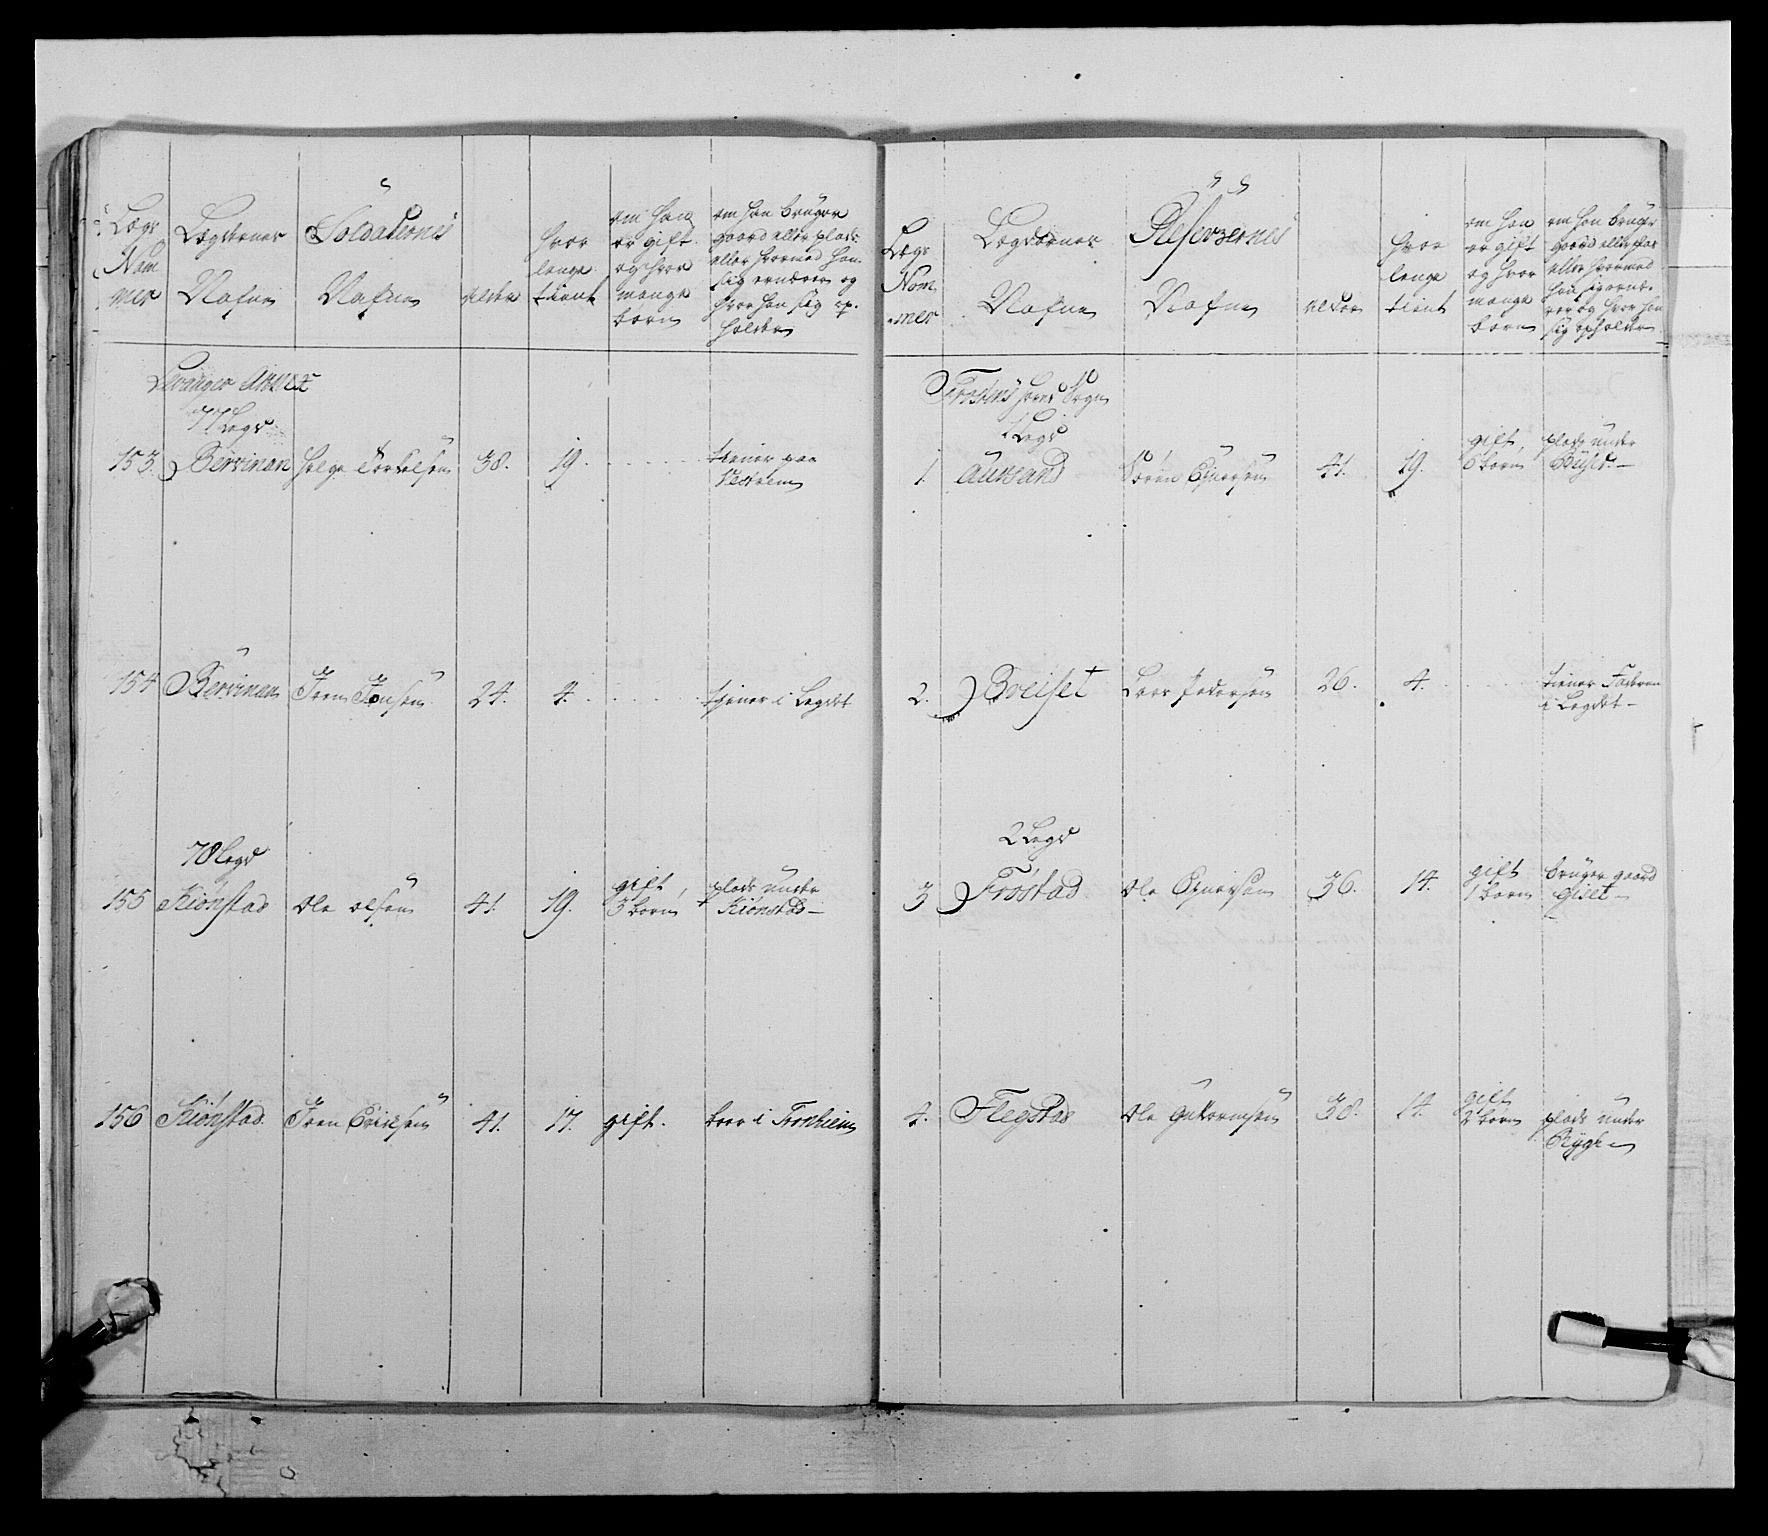 Lægs
Nom
mer
Lægdernes
Nafne
Soldaternes
Nafne
Alder
hvor
længe
tient
om han
er gift
og hvor
mange
børn
om han bruger
gaard eller plads
eller hvormed han
sig ernærer og
hvor han sig op-
holder
Levanger Annex
77 Legd
153. Bervinan Helge Tordelsen 38. 19. tiener paa
154 Bervinan Iven Jonsen 24. 4. tjener i Legdet
78 Legd
155 Kiønstad Ole Olsen 41. 19. gift 3 børn plads under
Kiønstad
156 Kiønstad. Iven Ericksen 41. 17. gift. boer i Tronhiem
Lægs
Nom
mer
Lægdernes
Nafne
Reservernes
Nafne
Alder
hvor
lenge
tient
om han
er gift
og hvor
mange
børn
om han bruger
gaard eller plas
eller hvormed
han sig ernæ-
rer og hvor han
sig opholder
Frostens Sogn
1 Legd
1. Aursand Sören Ejnersen 41. 19. gift 6 børn plads under
2. Breiset Lars Pedersen 26. 4. tiener Faderen
i Legdet
2 Legd
3 Frøstad Ole Ejnersen 36. 14. gift 1 børn bruger gaard
4. Flegstad Ole Guttormsen 38. 14. gift 2 børn plads under
Rygh